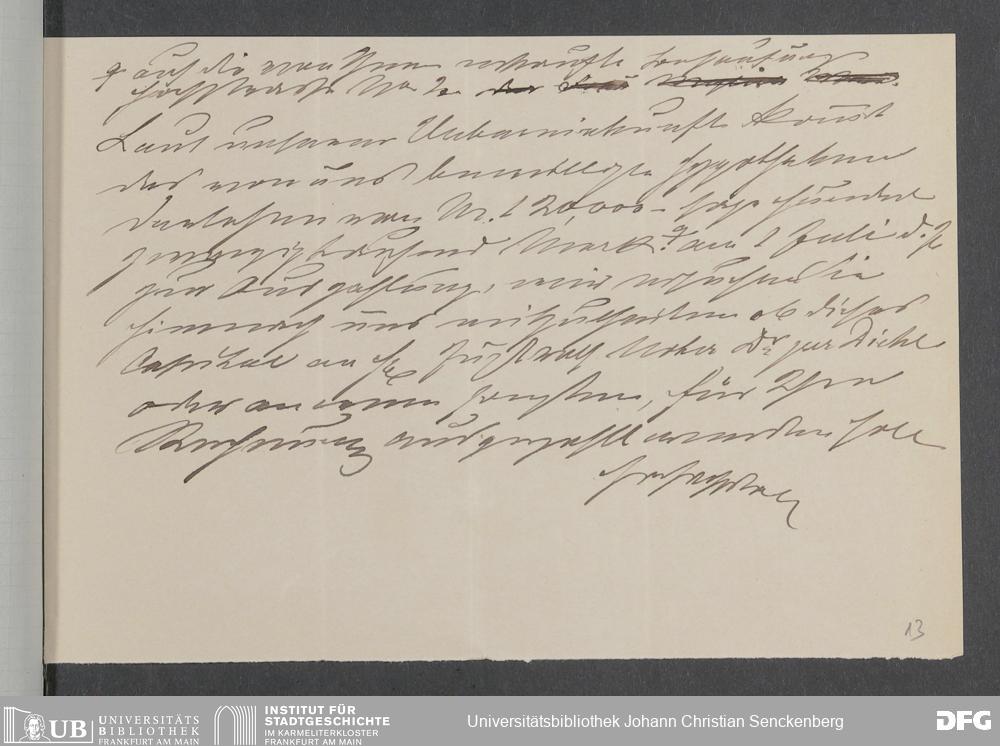 auf die von Ihnen erkaufte Behausung
Hochstrasse No 2.
Laut unserer Uebereinkunft kommt
das von uns bewilligte Hypotheken
Darlehen von M. 120,000 – sage hundert
zwanzigtausend Mark am 1 Juli d. J.
zur Auszahlung, wir ersuchen Sie
hiernach uns mitzutheilen ob dieses
Capital an Justizrath Dr zur
oder an einen sonstigen, für Ihre
Rechnung ausgezahlt werden soll
Hochachtend
13
UB UNIVERSITÄTS
BIBLIOTHEK
FRANKFURT AM MAIN
INSTITUT FÜR
STADTGESCHICHTE
IM KARMELITERKLOSTER
FRANKFURT AM MAIN
Universitätsbibliothek Johann Christian Senckenberg
DFG